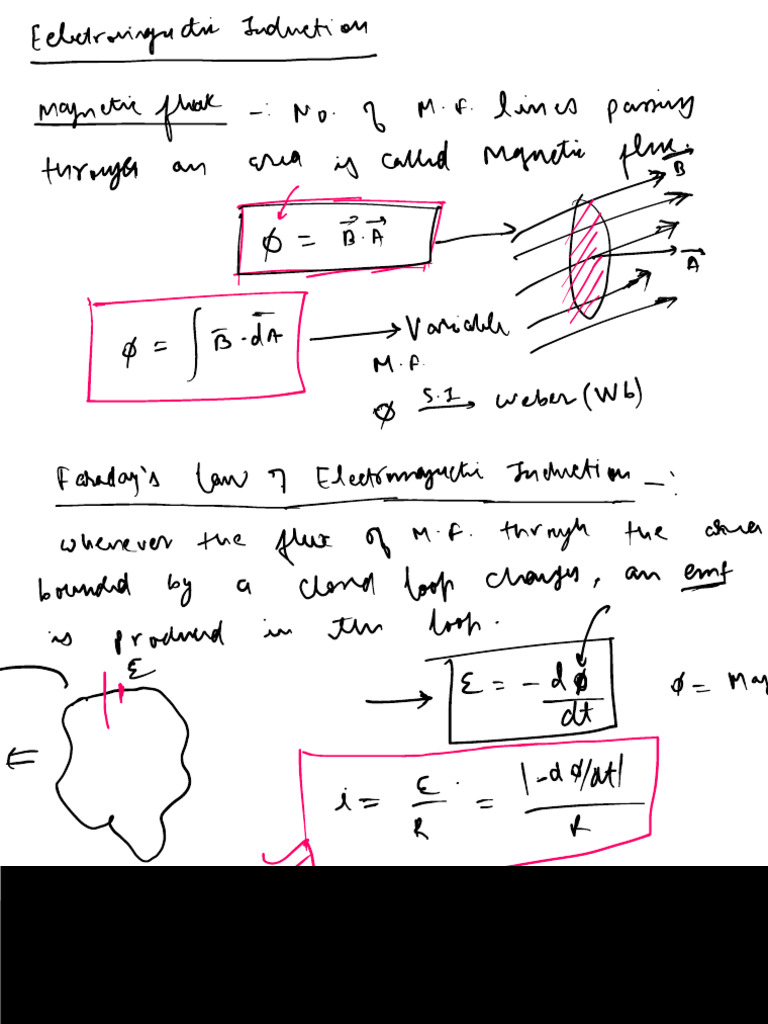 Electromagnetic Induction
Magnetic flux -: No. of M.F. lines passing
through an area is called Magnetic flux.
B⃗
ϕ = B⃗.A⃗
A⃗
ϕ = ∫ B⃗.dA⃗ → Variable
M.F.
ϕ S.I → weber (Wb)
Faraday's Law of Electromagnetic Induction -:
whenever the flux of M.F. through the area
bounded by a closed loop changes, an emf
is produced in the loop.
ε
→ ε = - dϕ/dt ϕ = Mag
i = ε/R = |-dϕ/dt|/R